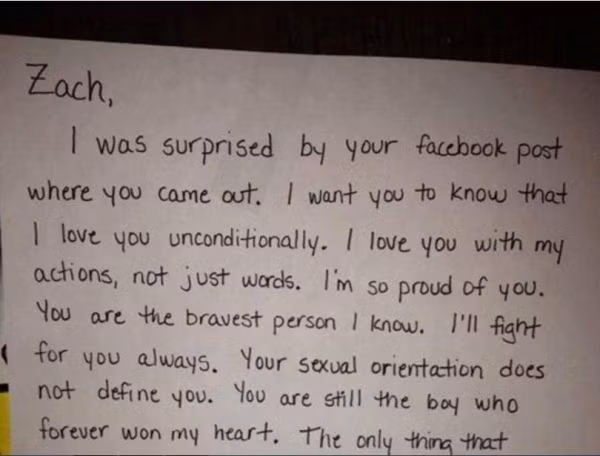 Zach,
I was surprised by your facebook post
where you came out. I want you to know that
I love you unconditionally. I love you with my
actions, not just words. I'm so proud of you.
You are the bravest person I know. I'll fight
for you always. Your sexual orientation does
not define you. You are still the boy who
forever won my heart. The only thing that